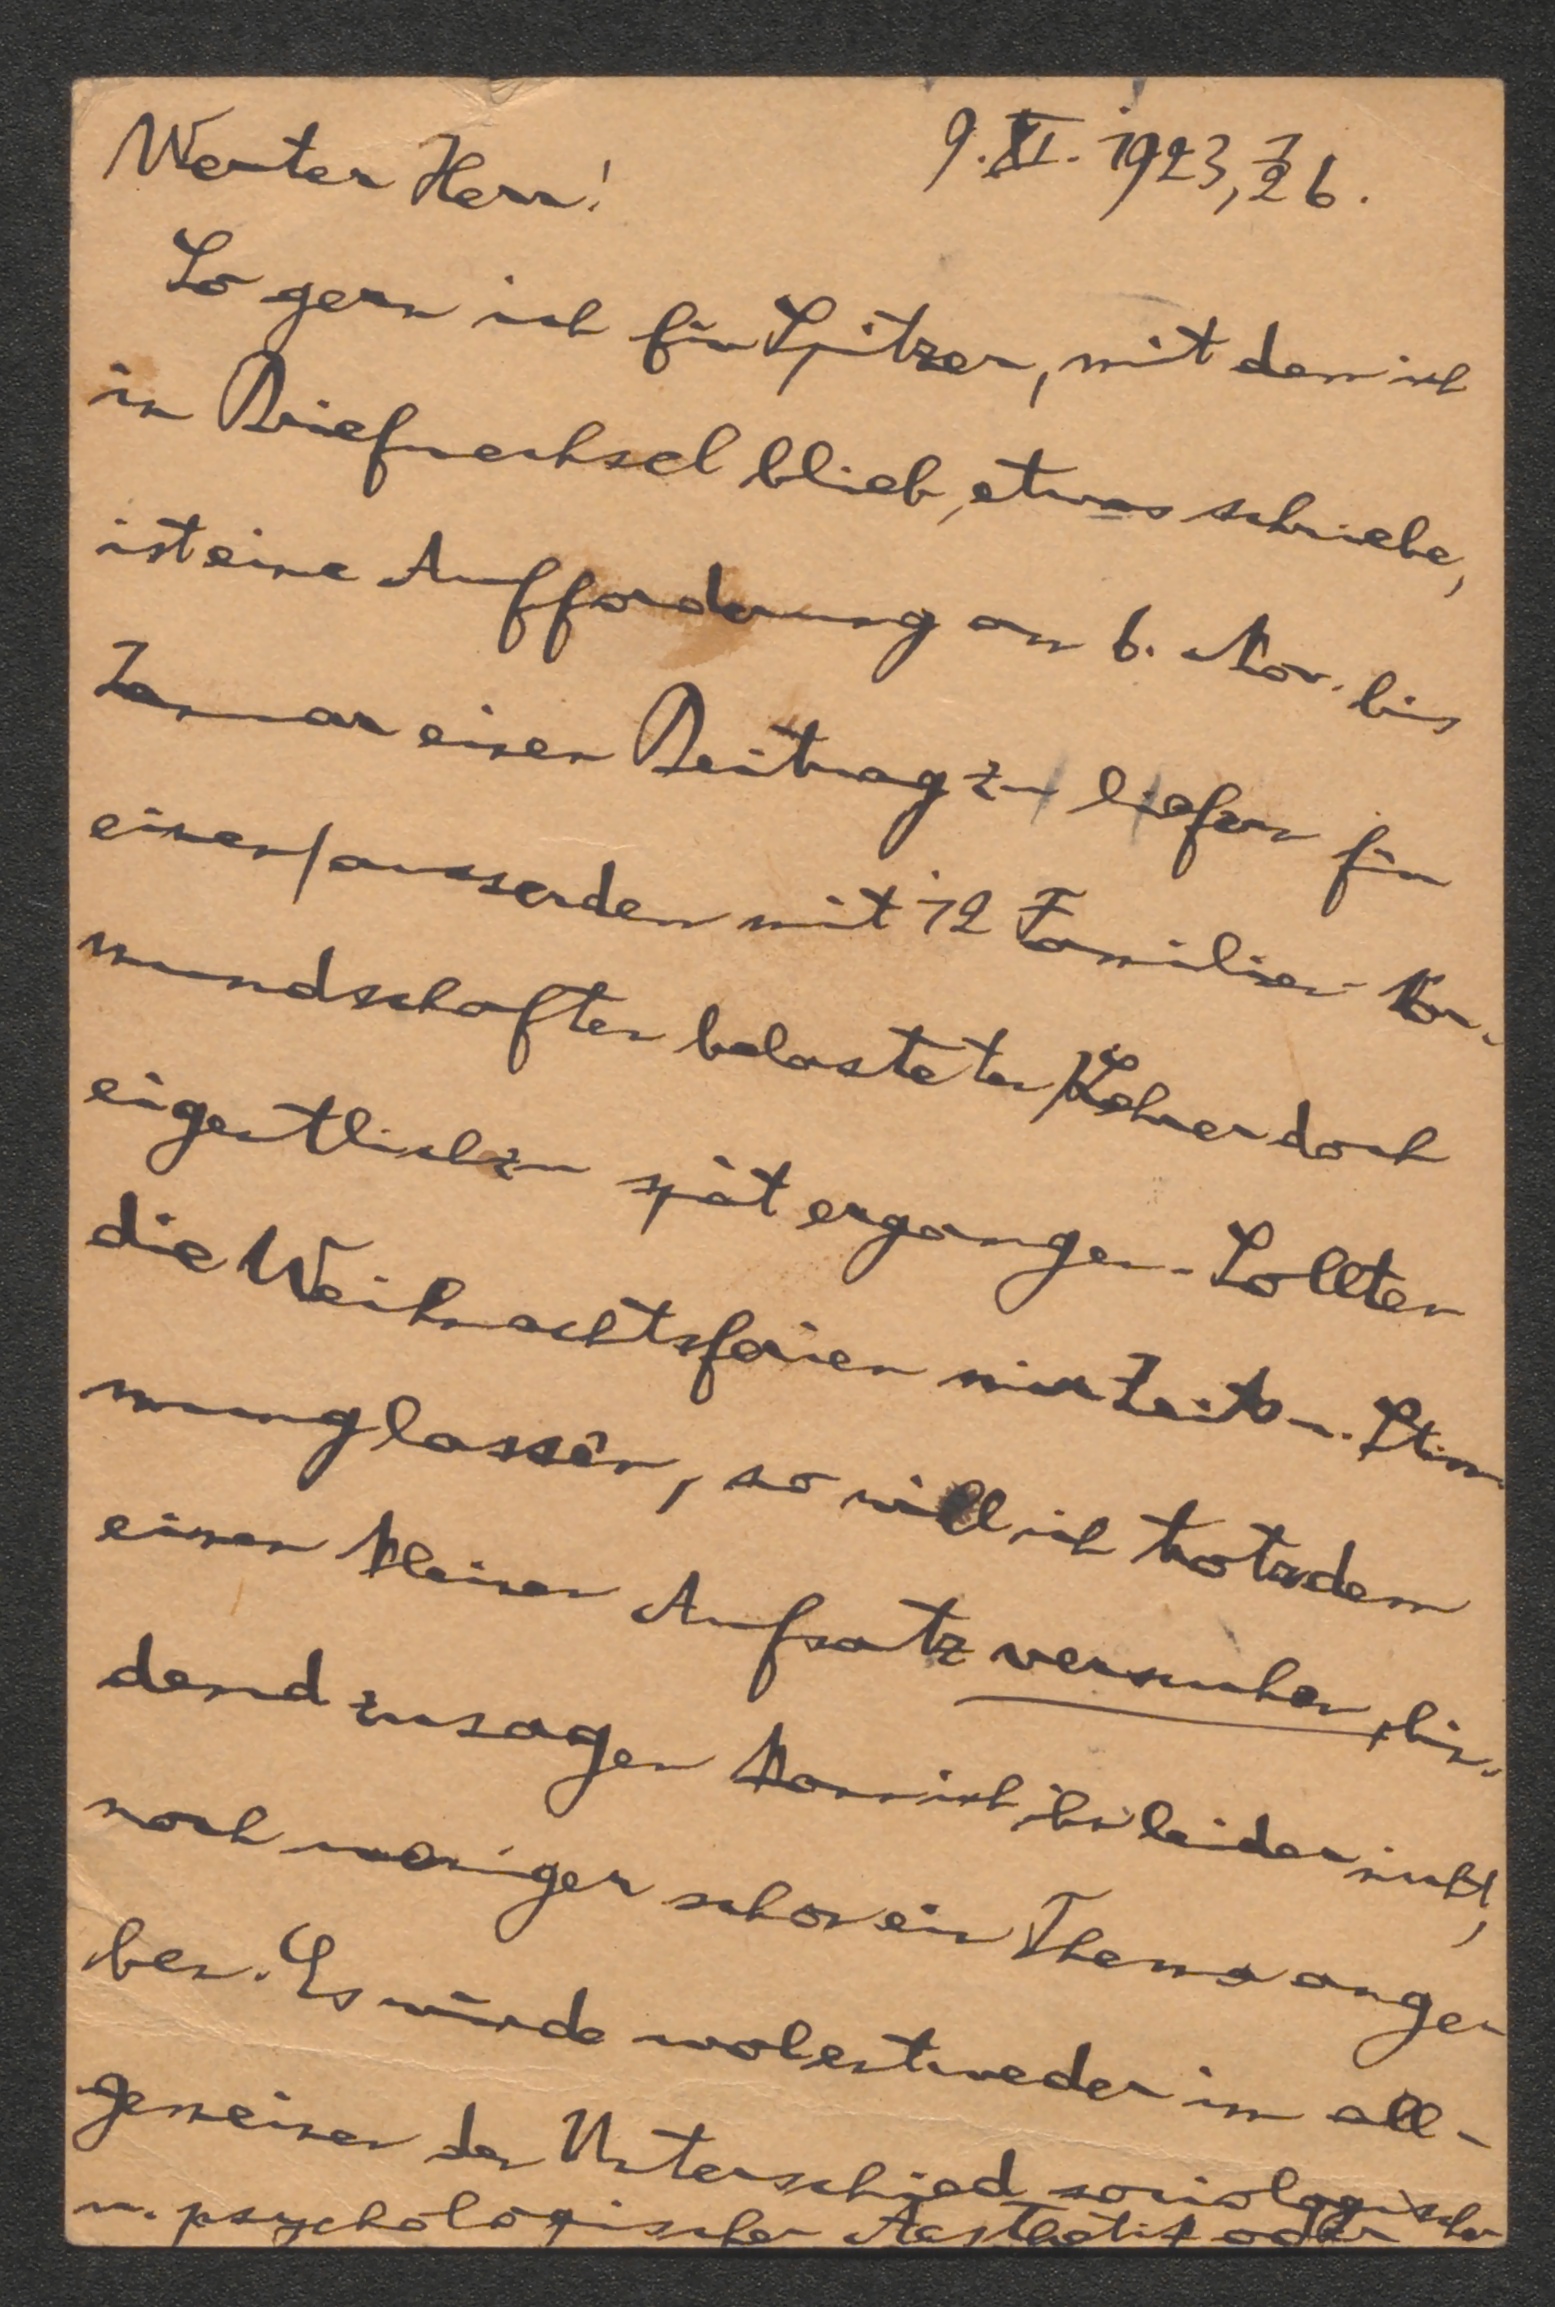 Werter Herr! 9. XI. 1923, ½ 6.
So gern ich für Spitzer, mit dem ich
in Briefwechsel blieb, etwas schriebe,
ist eine Aufforderung am 6. Nov. bis
Januar einen Beitrag zu liefern für
einen/ausserdem mit 12 Familien-Vor-
mundschaften belasteten/Lehrer doch
eigentlich zu spät ergangen. Sollten
die Weihnachtsferien mir Zeit u. Stim-
mung lassen, so will ich trotzdem
einen kleinen Aufsatz versuchen, bin-
dend zusagen kann ich ihn leider nicht,
noch weniger schon ein Thema ange-
ben. Es würde wol entweder im all-
gemeinen der Unterschied soziologischer
u. psychologischer Aesthetik oder